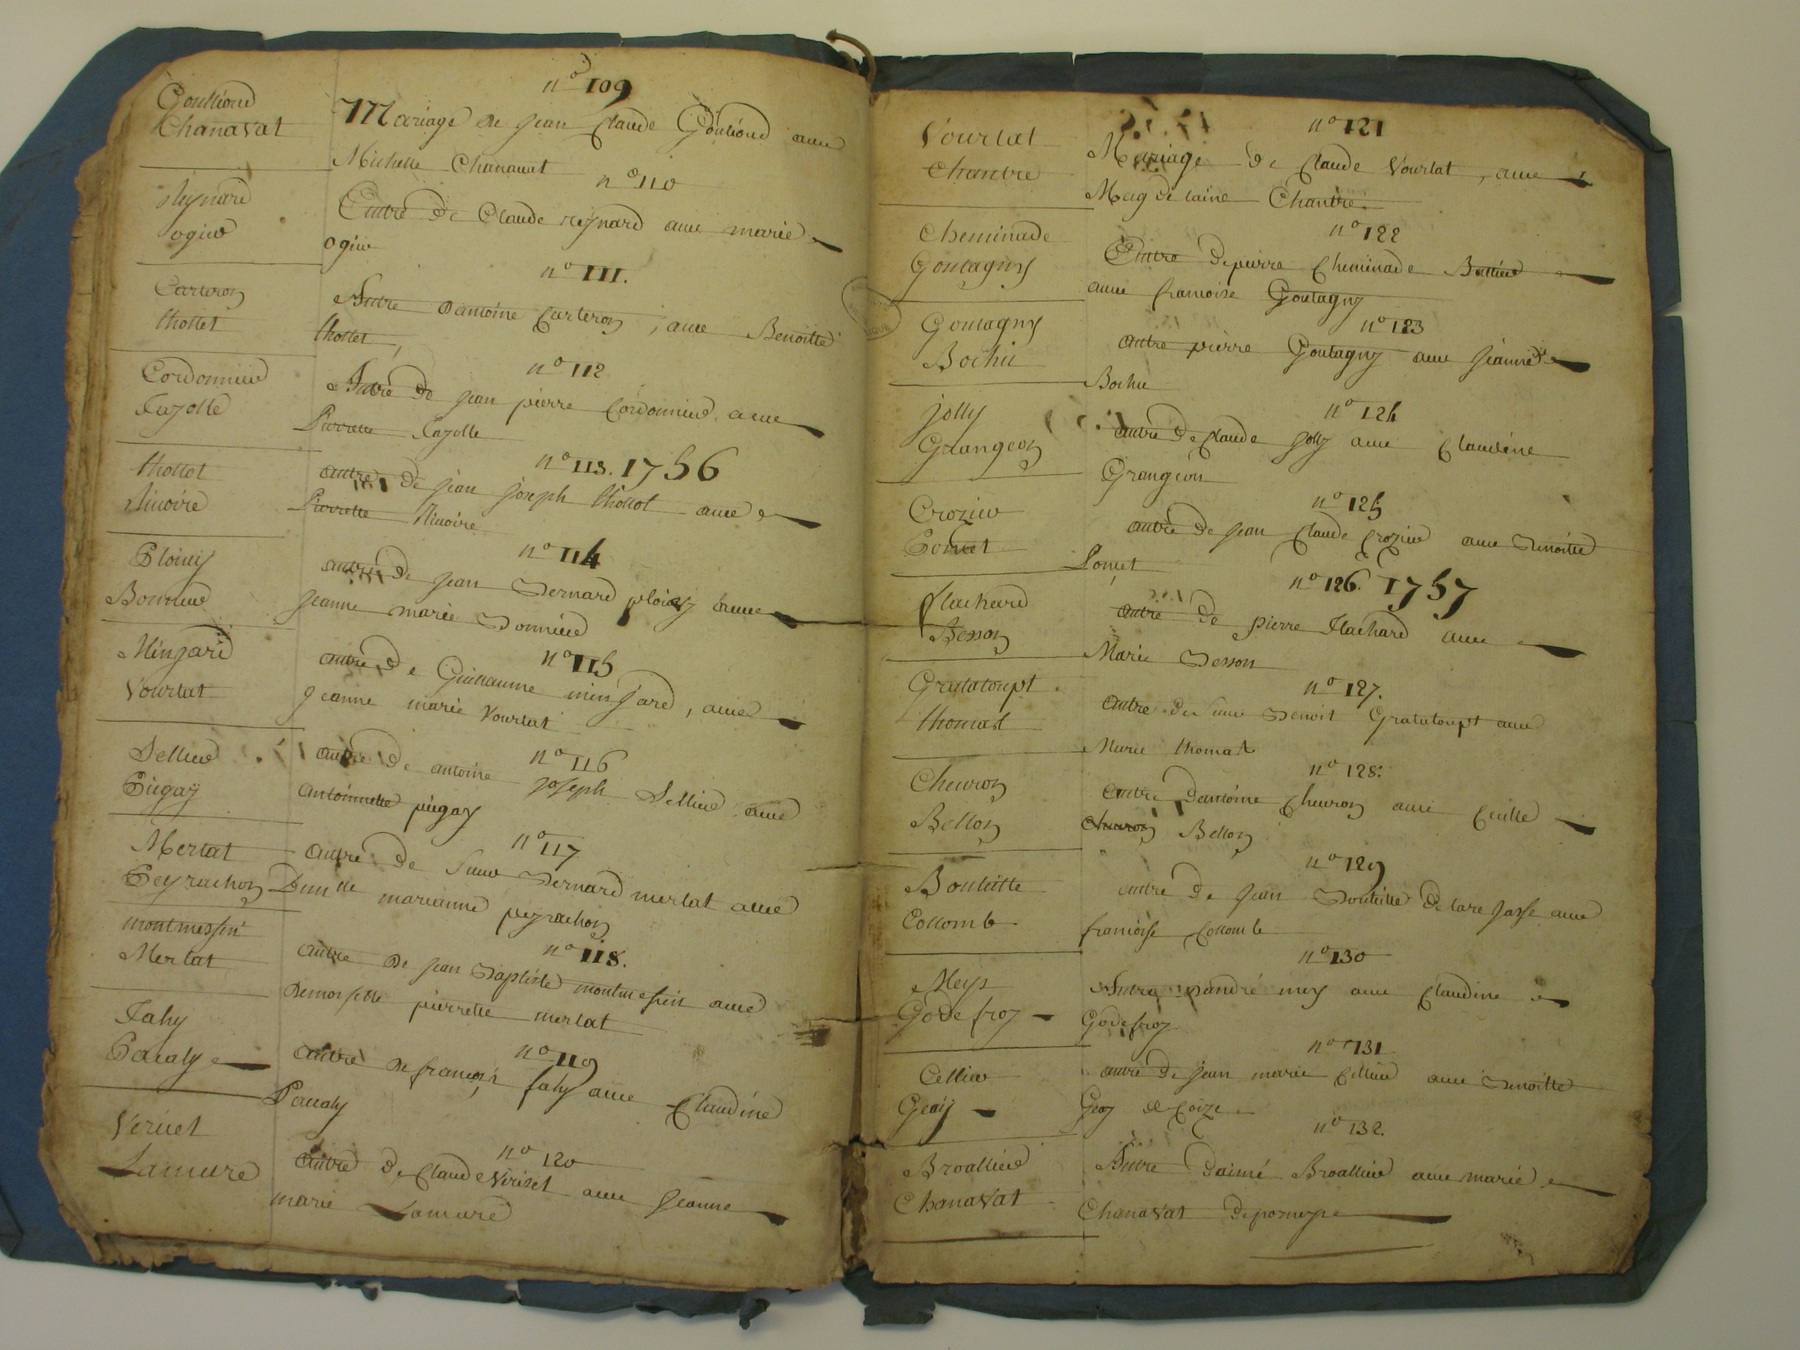 Goutiond
Chanavat
n° 109
Mariage de jean Claude Goutiond avec
Michelle Chanavat
Reynard
ogier
n° 110
Autre de Claude reynard avec marie
ogier
Carteron
thollet
n° 111.
Autre dantoine Carteron, avec Benoitte
thollet,
Cordonnier
Fayolle
n° 112
Autre de jean pierre Cordonnier avec
Pierrette fayolle
thollot
n° 113. 1756
autre de jean joseph thollot avec
Pierrette
Ploivy
Bonnier
n° 114
autre de jean Bernard ploivy avec
jeanne marie Bonnier
Minjard
Vourlat
n° 115
autre de Guillaume minjard, avec
jeanne marie Vourlat
Sellier
Pugay
n° 116
autre de antoine joseph Sellier avec
antoinette pugay
Merlat
Peyrachon
n° 117
autre de sieur Bernard merlat avec
marianne peyrachon
montmessin
Merlat
n° 118.
autre de jean Baptiste montmessin avec
Demoiselle pierrette merlat
Jahy
Pacaly
n° 119
autre de francois jahy avec Claudine
Pacaly
Vericel
Lamure
n° 120
autre de Claude Vericel avec jeanne
marie Lamure
Vourlat
Chantre
n° 121
Mariage de Claude Vourlat, avec
Magdelaine Chantre.
Cheminade
Goutagny
n° 122
Autre de pierre Cheminade
avec francoise Goutagny
Goutagny
Bochu
n° 123
autre pierre Goutagny avec jeanne
Bochu
jolly
Grangeon
n° 124
autre de Claude jolly avec Claudine
Grangeon
Crozier
Poncet
n° 125
autre de jean Claude Crozier avec Benoitte
Poncet
flachard
Besson
n° 126. 1757
autre de pierre flachard avec
Marie Besson
Grataloupt
thomas
n° 127.
autre de sieur Benoit Grataloupt avec
Marie thomas
Chevron
Bellon
n° 128.
autre dantoine Chevron avec
Bellon
Bouteille
Collomb
n° 129
autre de jean Bouteille de larajasse avec
francoise Collomb
Meys
Godefroy
n° 130
Autre dandré mey avec Claudine
Godefroy
Cellier
Geay
n° 131
autre de jean marie Cellier avec Benoitte
Geay de Coize
Broallier
Chanavat
n° 132.
Autre daimé Broallier avec marie
Chanavat de pomeys